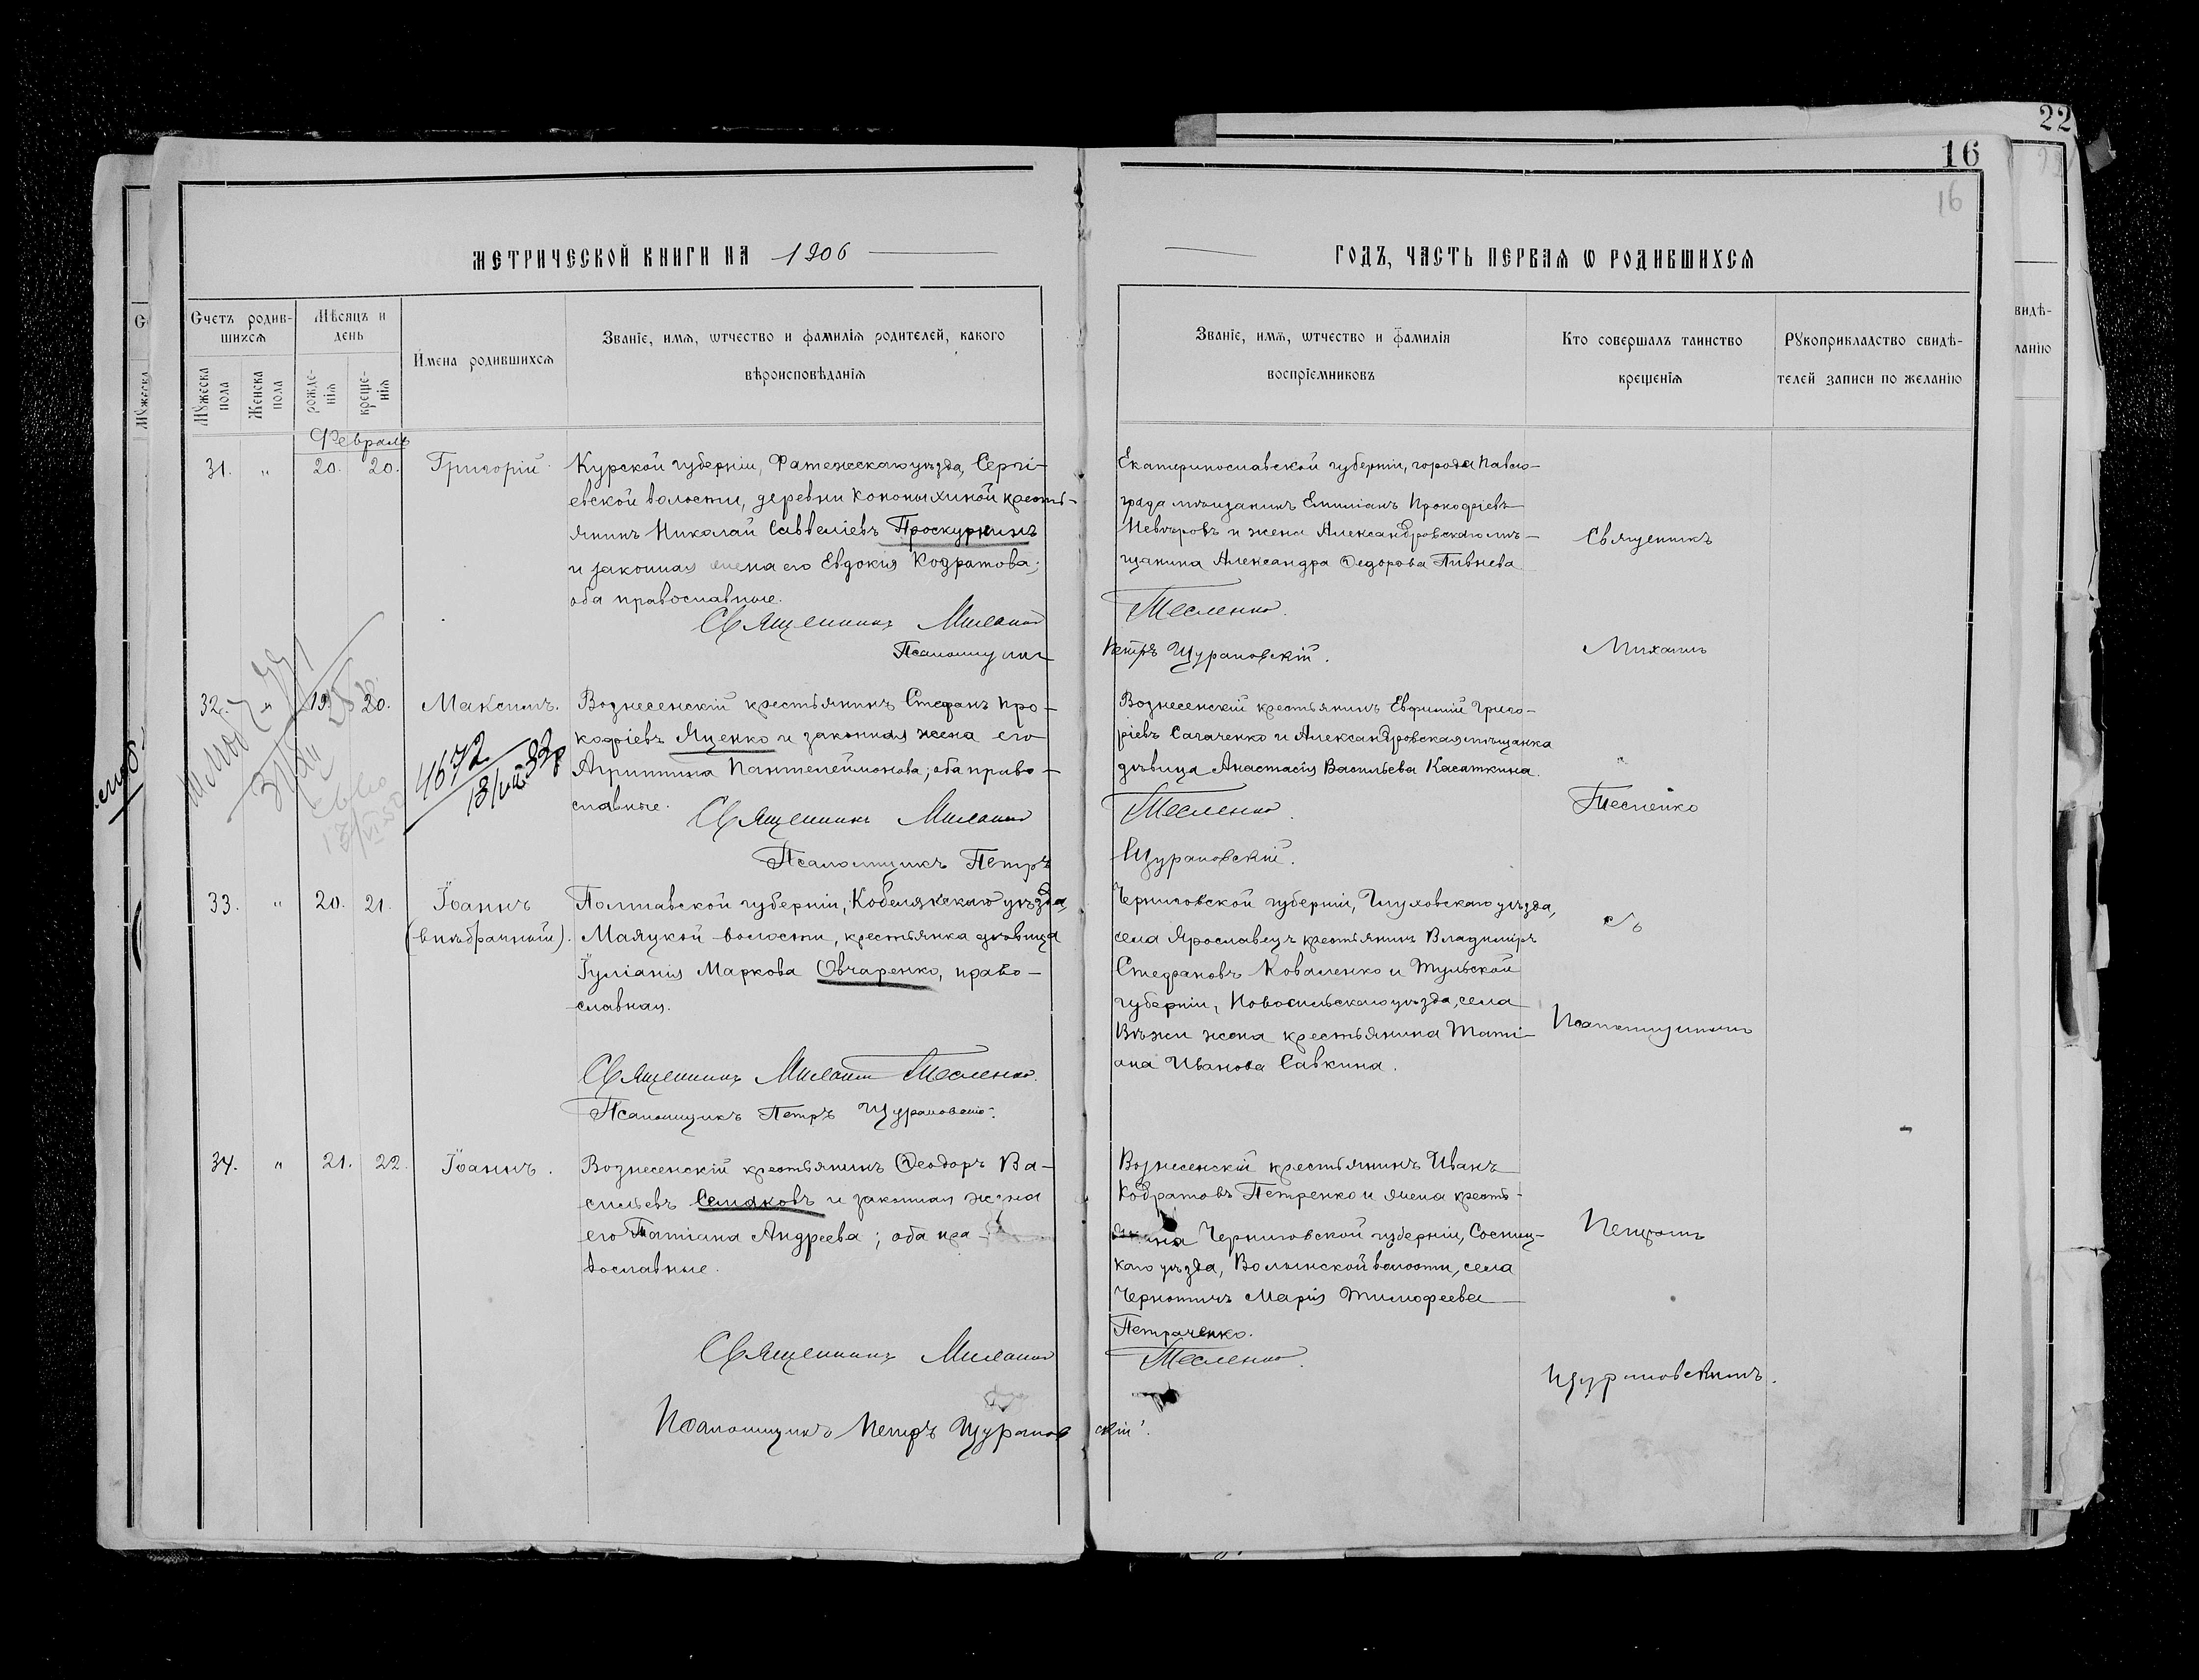 22
16
16
МЕТРИЧЕСКОЙ КНИГИ НА 1906
ГОДЪ, ЧАСТЬ ПЕРВАЯ Ѡ РОДИВШИХСЯ
Счетъ родив-
шихся
Мужеска пола
Женска пола
Мѣсяцъ и
день
рожде-
нія
креще-
нія
Имена родившихся
Званіе, имя, ѡтчество и фамилія родителей, какого
вѣроисповѣданія
Званіе, имя, ѡтчество и фамилія
воспріемниковъ
Кто совершалъ таинство
крещенія
Рукоприкладство свидѣ-
телей записи по желанію
Февраль
31. " 20. 20. Григорій.
Курской губерніи, Фатежскаго уѣзда, Сергі-
евской волости, деревни Кононыхиной кресть-
янинъ Николай Савеліевъ Проскуринъ
и законная жена его Евдокія Кодратова;
оба православные.
Священникъ
Псаломщикъ
Екатеринославской губерніи, города Павло-
града мѣщанинъ Емиліанъ Прокофіевъ
Невѣровъ и жена Александровскаго мѣ-
щанина Александра Ѳедорова Пивнева
Тесленко.
Петръ Щурановскій.
32. " 19. 20. Максимъ.
4672
Вознесенскій крестьянинъ Стефанъ Про-
кофіевъ Яценко и законная жена его
Агриппина Пантелеймонова; оба право-
славные.
Священникъ
Псаломщикъ Петръ
Вознесенскій крестьянинъ Евфимій Григо-
ріевъ Сагаченко и Александровская мѣщанка
дѣвица Анастасія Васильева Касаткина.
Тесленко.
Щурановскій.
33. " 20. 21. Іоаннъ
(внѣбрачный).
Полтавской губерніи, Кобелякскаго уѣзда,
Маяцкой волости, крестьянка дѣвица
Іуліанія Маркова Овчаренко, право-
славная.
Священникъ Тесленко.
Псаломщикъ Петръ Щурановскій.
Черниговской губерніи, Глуховскаго уѣзда,
села Ярославецъ крестьянинъ Владиміръ
Стефановъ Коваленко и Тульской
губерніи, Новосильскаго уѣзда, села
Вѣжи жена крестьянина Тати-
ана Иванова Савкина.
34. " 21. 22. Іоаннъ.
Вознесенскій крестьянинъ Ѳеодоръ Ва-
сильевъ Семаковъ и законная жена
его Татіана Андреева; оба пра-
вославные.
Священникъ
Псаломщикъ Петръ Щурановскій.
Вознесенскій крестьянинъ Иванъ
Кодратовъ Петренко и жена кресть-
янина Черниговской губерніи, Сосниц-
каго уѣзда, Волынской волости, села
Чернотичъ Марія Тимофеева
Петраченко.
Тесленко.
Священникъ
Михаилъ
Тесленко
съ
Псаломщикомъ
Петромъ
Щурановскимъ.